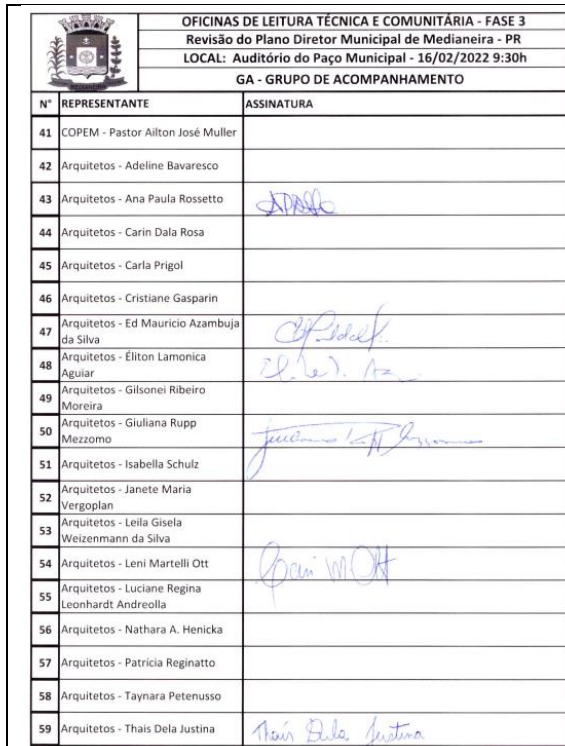 OFICINAS DE LEITURA TÉCNICA E COMUNITÁRIA - FASE 3
Revisão do Plano Diretor Municipal de Medianeira - PR
LOCAL: Auditório do Paço Municipal - 16/02/2022 9:30h
GA - GRUPO DE ACOMPANHAMENTO
MEDIANEIRA
N° REPRESENTANTE ASSINATURA
41 COPEM - Pastor Ailton José Muller
42 Arquitetos - Adeline Bavaresco
43 Arquitetos - Ana Paula Rossetto
44 Arquitetos - Carin Dala Rosa
45 Arquitetos - Carla Prigol
46 Arquitetos - Cristiane Gasparin
47 Arquitetos - Ed Mauricio Azambuja
da Silva
48 Arquitetos - Éliton Lamonica
Aguiar
49 Arquitetos - Gilsonei Ribeiro
Moreira
50 Arquitetos - Giuliana Rupp
Mezzomo
51 Arquitetos - Isabella Schulz
52 Arquitetos - Janete Maria
Vergoplan
53 Arquitetos - Leila Gisela
Weizenmann da Silva
54 Arquitetos - Leni Martelli Ott
M Ott
55 Arquitetos - Luciane Regina
Leonhardt Andreolla
56 Arquitetos - Nathara A. Henicka
57 Arquitetos - Patrícia Reginatto
58 Arquitetos - Taynara Petenusso
59 Arquitetos - Thais Dela Justina Thaís Dela Justina